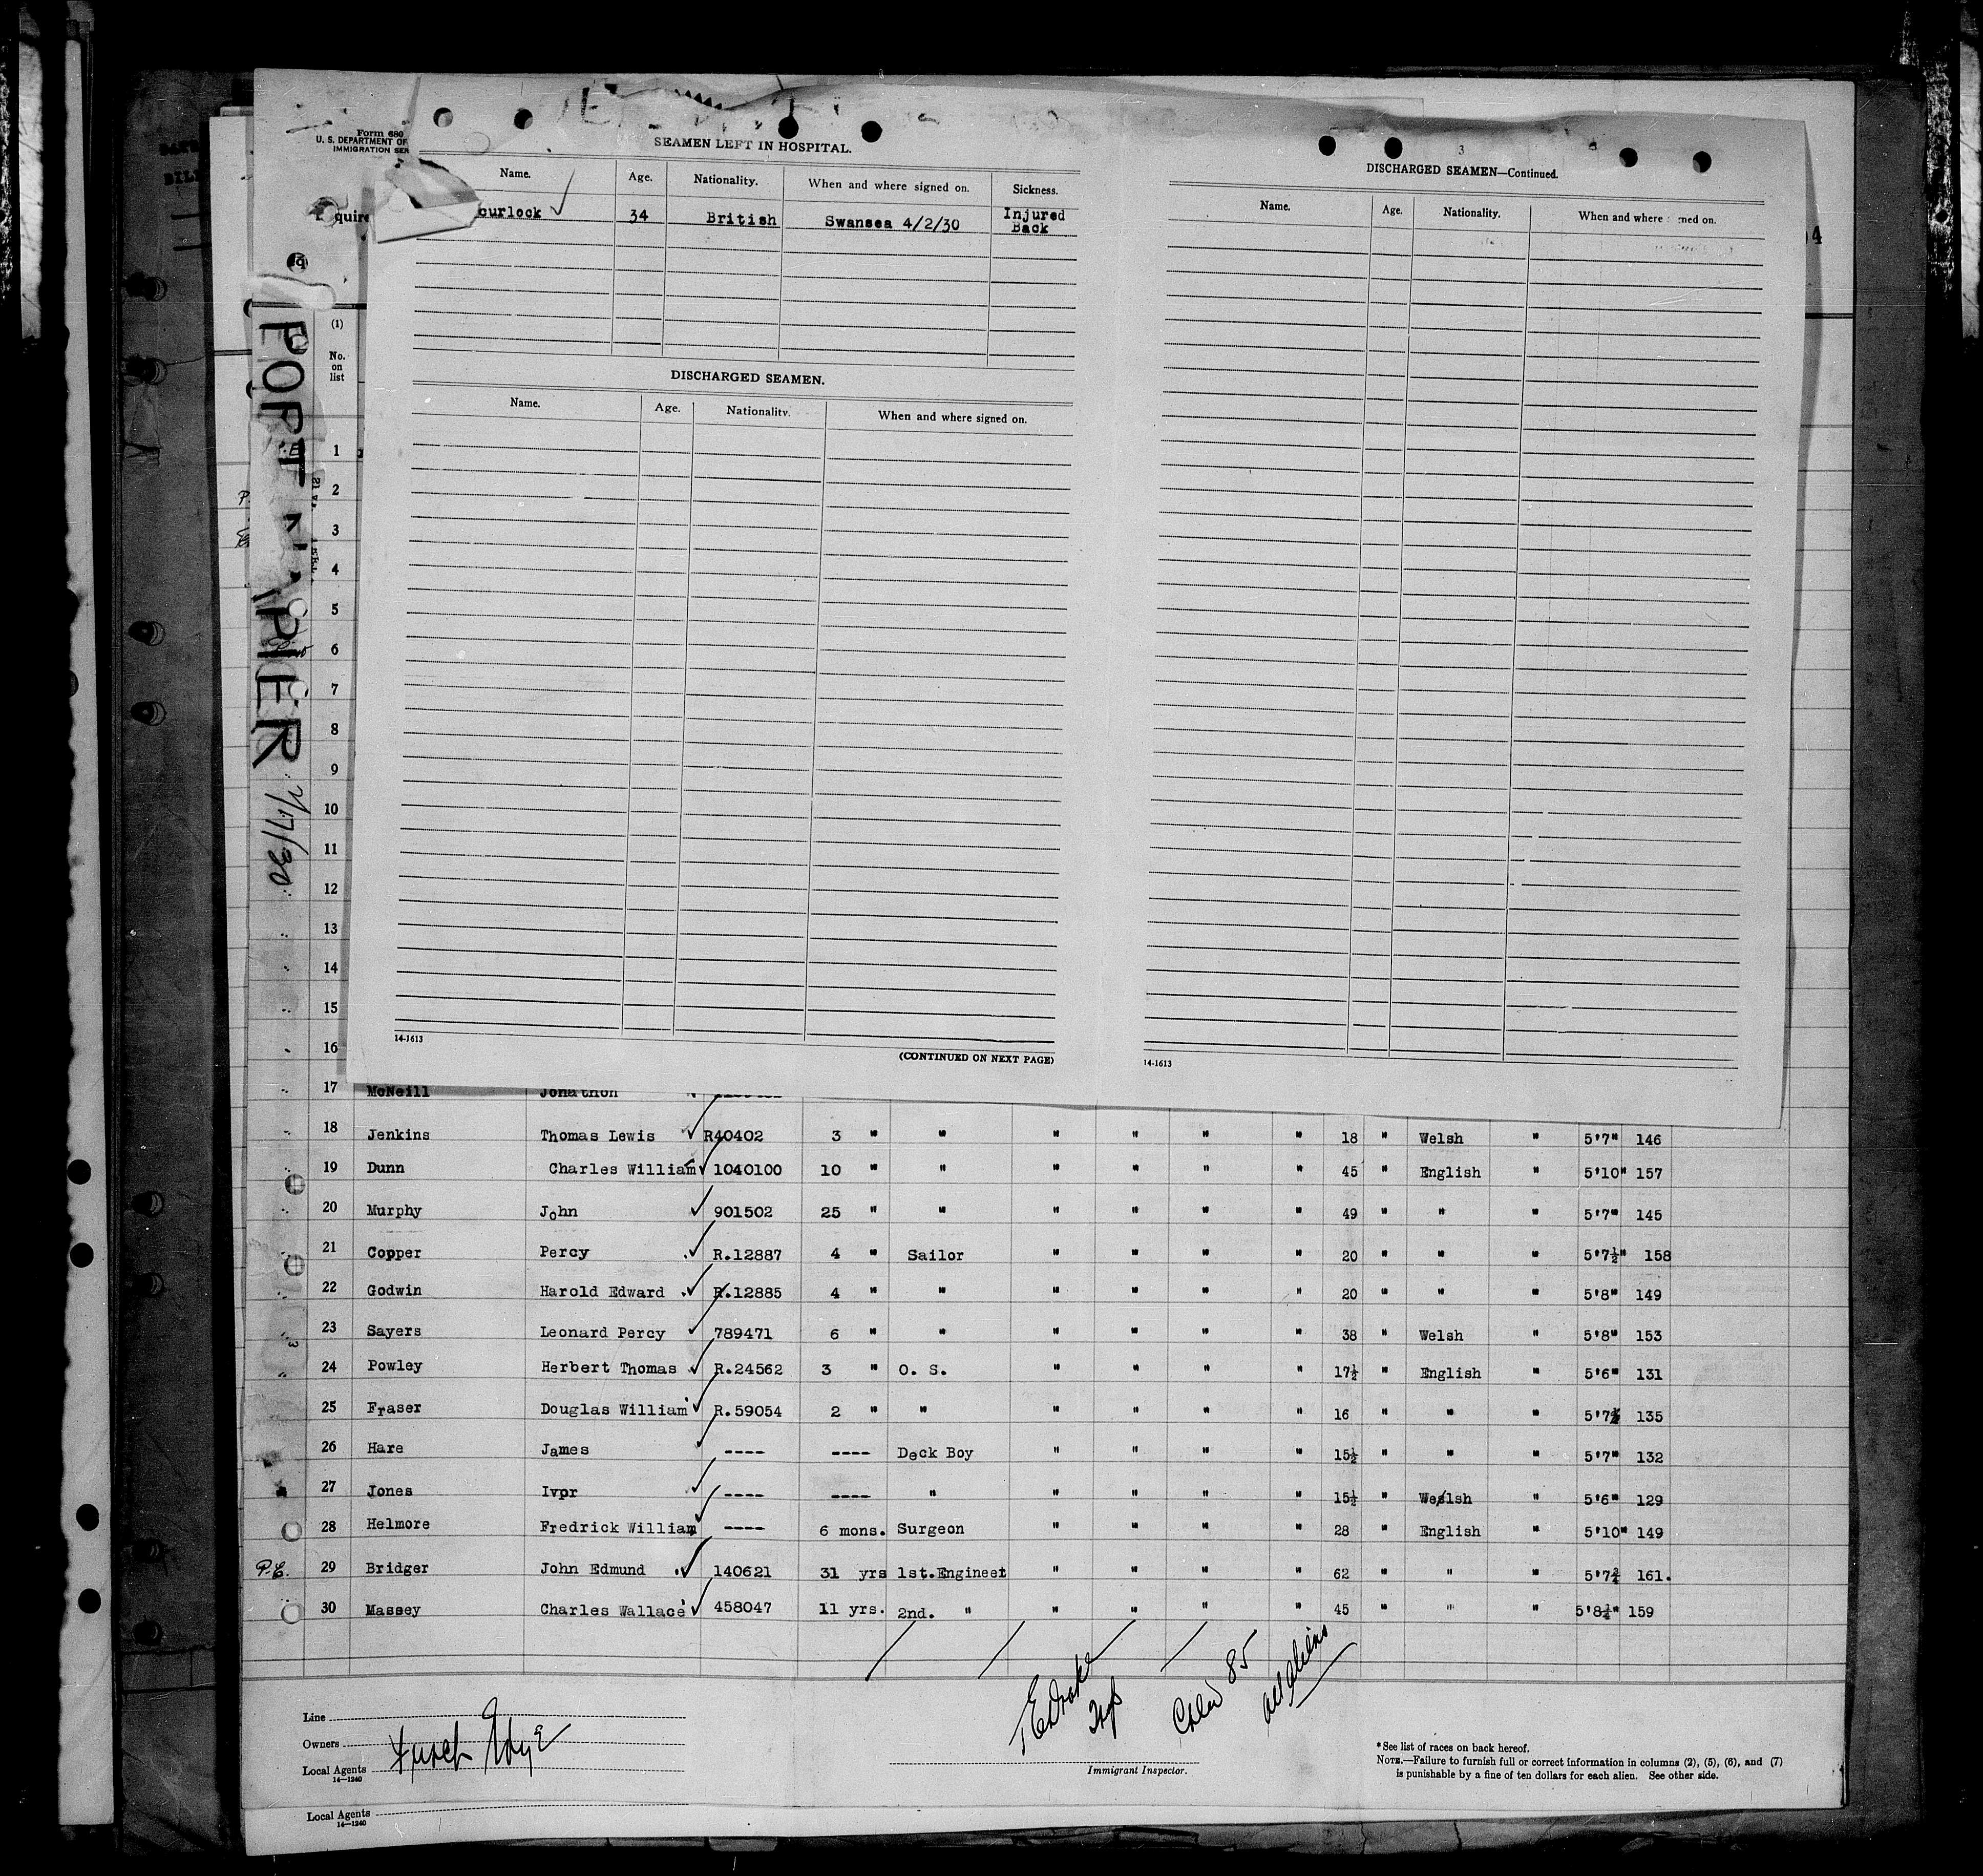 Form 680
U. S. DEPARTMENT OF
IMMIGRATION SER
SEAMEN LEFT IN HOSPITAL.
Name. Age. Nationality. When and where signed on. Sickness.
curlock 34 British Swansea 4/2/30 Injured Back
DISCHARGED SEAMEN.
Name. Age. Nationality. When and where signed on.
14-1613
(CONTINUED ON NEXT PAGE)
3
DISCHARGED SEAMEN—Continued.
Name. Age. Nationality. When and where signed on.
14-1613
quire
(1)
No. on list
PIER
1
2
3
4
5
6
7
8
9
10
11
12
13
14
15
16
17 McNeill Jonathon
18 Jenkins Thomas Lewis R40402 3 " " " " " " 18 " Welsh " 5'7" 146
19 Dunn Charles William 1040100 10 " " " " " " 45 " English " 5'10" 157
20 Murphy John 901502 25 " " " " " " 49 " " " 5'7" 145
21 Copper Percy R.12887 4 " Sailor " " " " 20 " " " 5'7½" 158
22 Godwin Harold Edward R.12885 4 " " " " " " 20 " " " 5'8" 149
23 Sayers Leonard Percy 789471 6 " " " " " " 38 " Welsh " 5'8" 153
24 Powley Herbert Thomas R.24562 3 " O. S. " " " " 17½ " English " 5'6" 131
25 Fraser Douglas William R.59054 2 " " " " " " 16 " " " 5'7 135
26 Hare James ---- ---- Deck Boy " " " " 15½ " " " 5'7" 132
27 Jones Ivpr ---- ---- " " " " " 15½ " Welsh " 5'6" 129
28 Helmore Fredrick William ---- 6 mons. Surgeon " " " " 28 " English " 5'10" 149
P.E. 29 Bridger John Edmund 140621 31 yrs 1st.Engineet " " " " 62 " " " 5'7½ 161.
30 Massey Charles Wallace 458047 11 yrs. 2nd. " " " " " 45 " " " 5'8½" 159
85
all aliens
Line
Owners
Local Agents
14—1240
Immigrant Inspector.
*See list of races on back hereof.
NOTE.—Failure to furnish full or correct information in columns (2), (5), (6), and (7)
is punishable by a fine of ten dollars for each alien. See other side.
Local Agents
14—1240